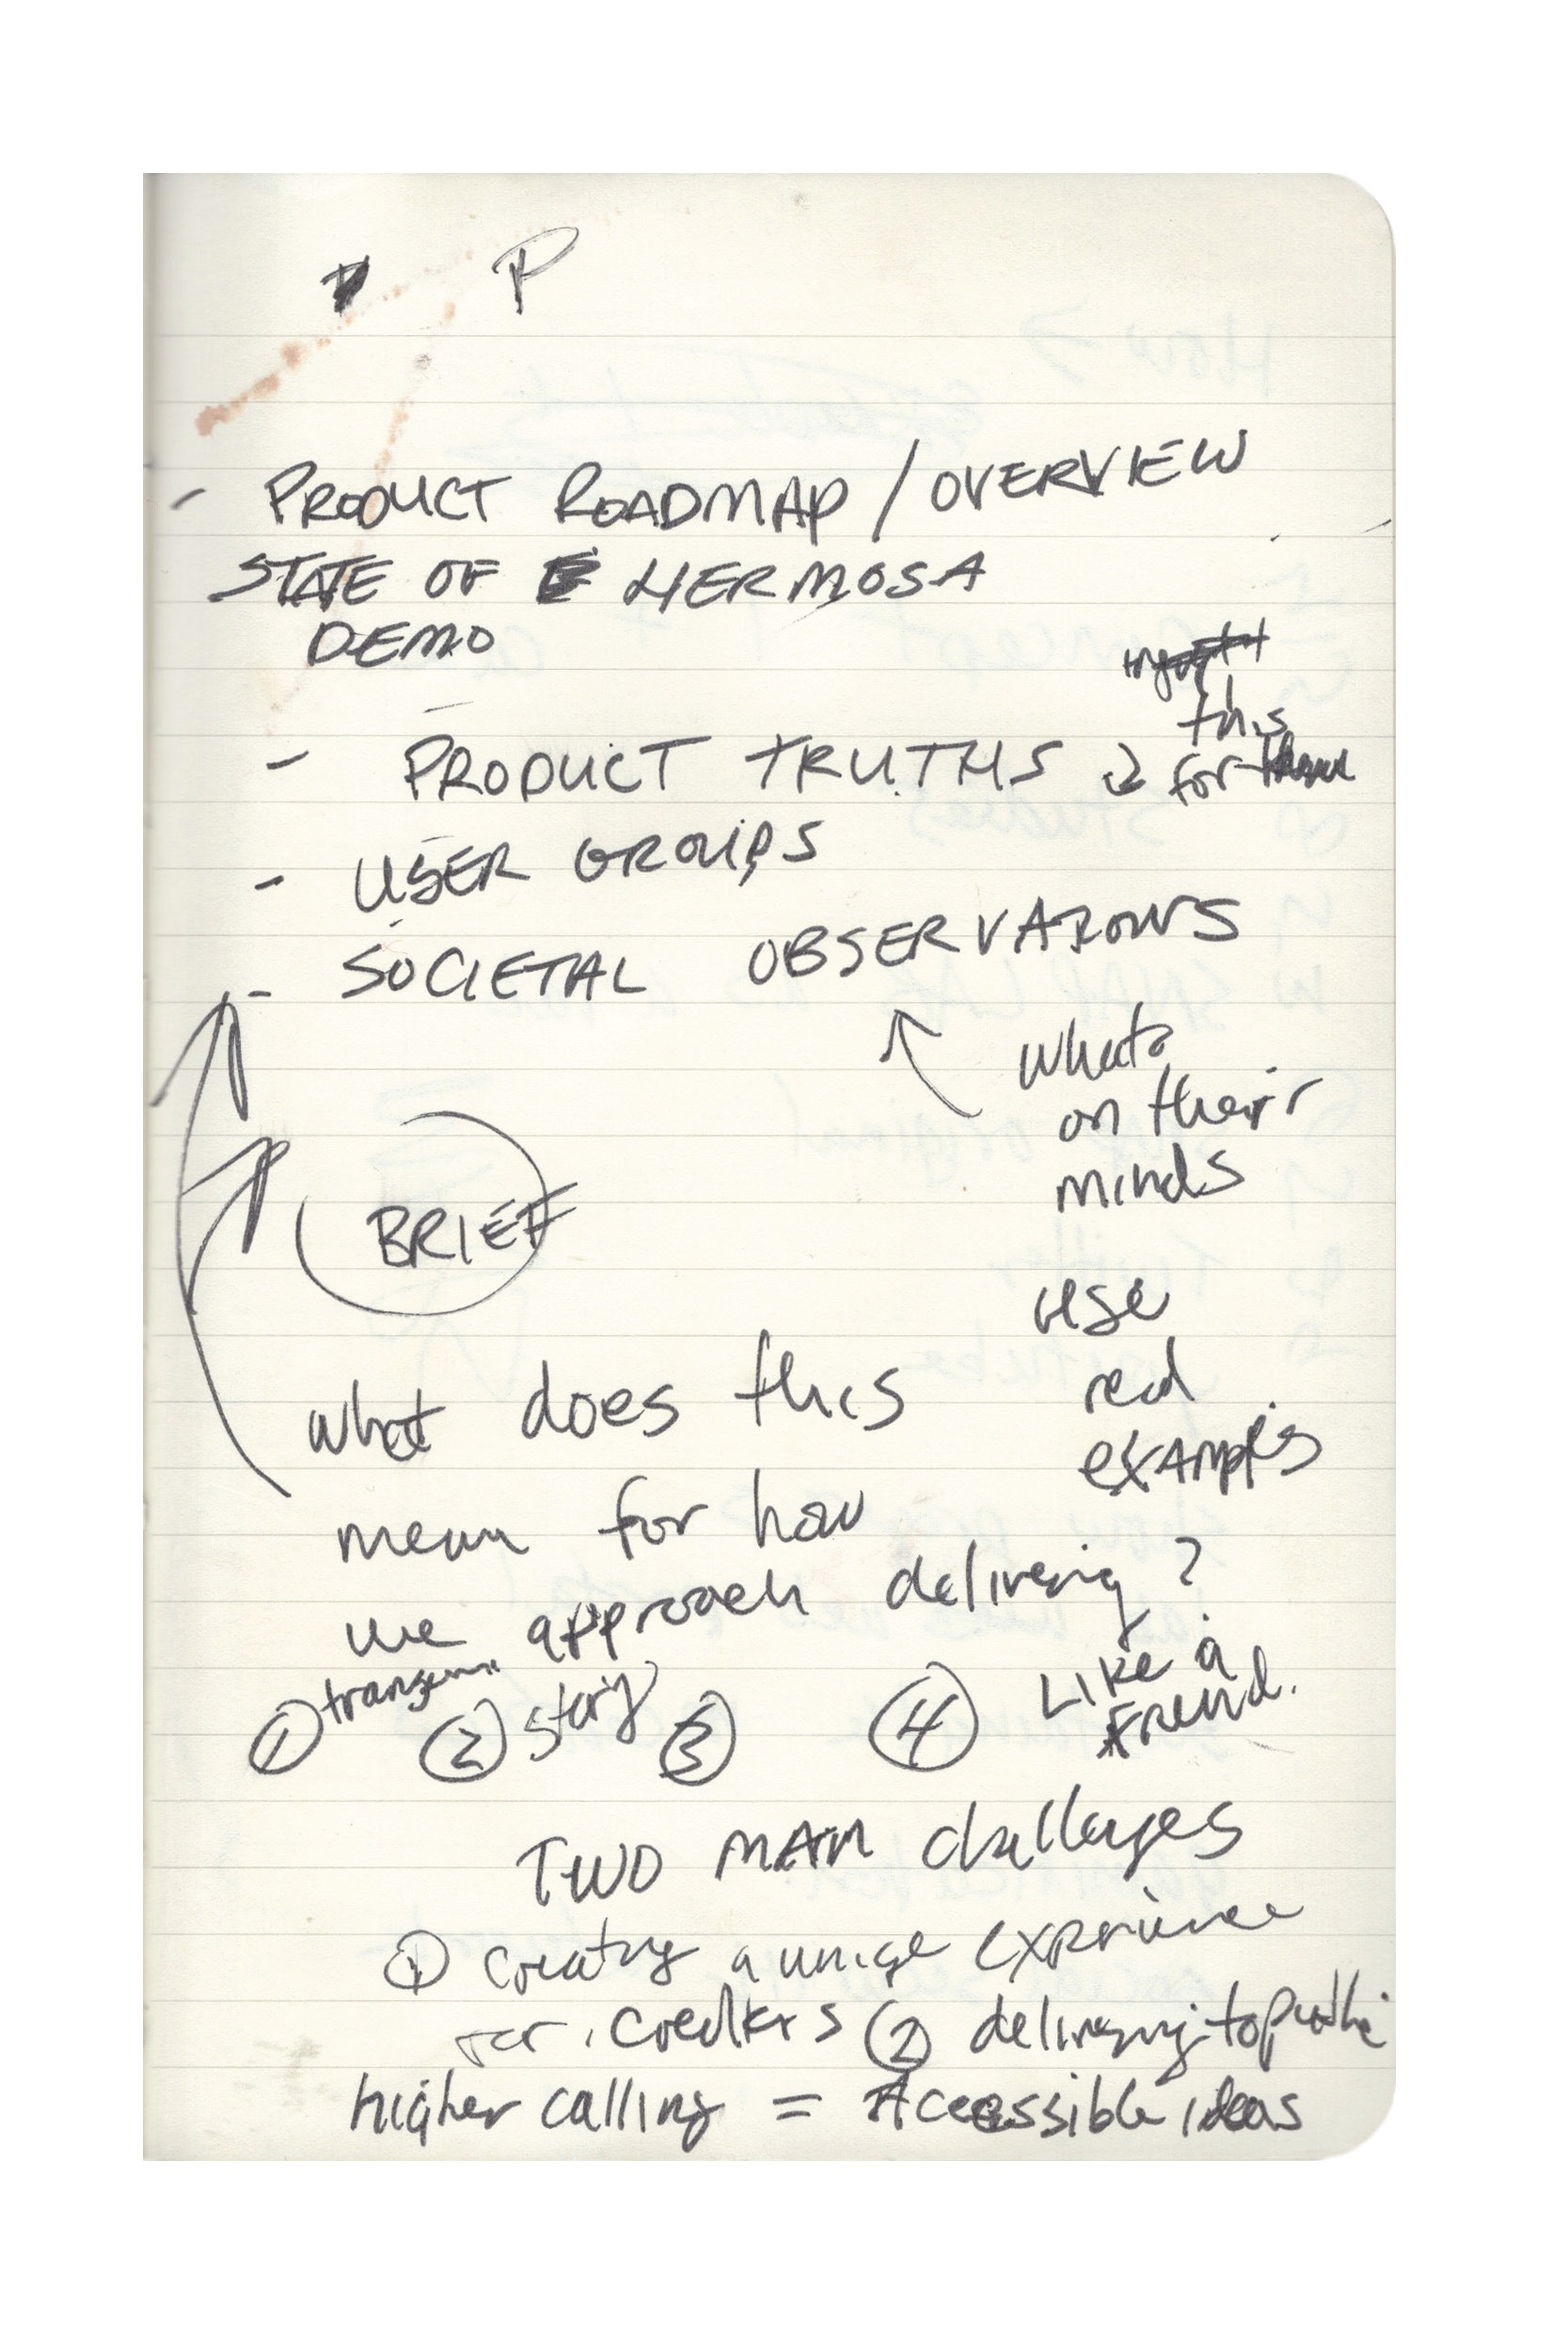 P
- PRODUCT ROADMAP / OVERVIEW
STATE OF HERMOSA
DEMO
this
- PRODUCT TRUTHS for
- USER GROUPS
- SOCIETAL OBSERVATIONS
whats
on their
minds
BRIEF
use
real
examples
what does this
mean for how
we approach delivering?
① ② story ③ ④ Like a
Friend.
TWO MAIN challenges
① creating a unique experience
for ② delivering to
higher calling = Accessible ideas